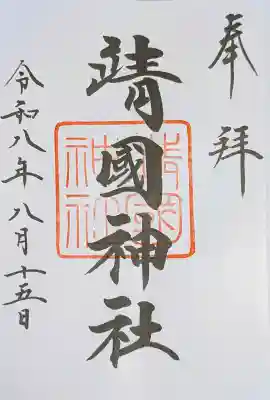 奉拝
靖國神社
靖國神社
令和八年八月十五日